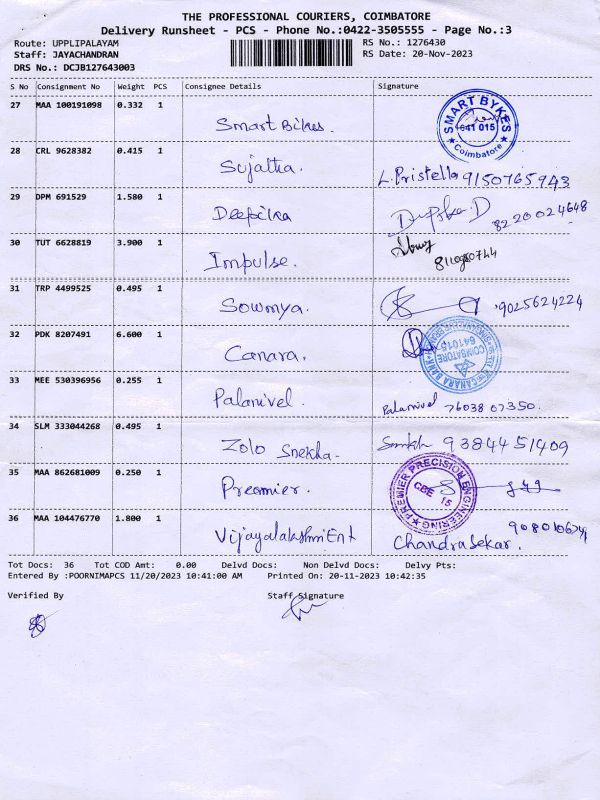 THE PROFESSIONAL COURIERS, COIMBATORE
Delivery Runsheet - PCS - Phone No.:0422-3505555 - Page No.:3
Route: UPPLIPALAYAM RS No.: 1276430
Staff: JAYACHANDRAN RS Date: 20-Nov-2023
DRS No.: DCJB127643003
S No Consignment No Weight PCS Consignee Details Signature
27 MAA 100191098 0.332 1
Smart Bikes.
SMART BYKES
641 015
Coimbatore
28 CRL 9628382 0.415 1
Sujatha. L.Pristella 9150765943
29 DPM 691529 1.580 1
Deepika Deepika.D 8220024648
30 TUT 6628819 3.900 1
Impulse.
31 TRP 4499525 0.495 1
Sowmya. 9025624224
32 PDK 8207491 6.600 1
Canara.
CANARA BANK
COIMBATORE
641015
33 MEE 530396956 0.255 1
Palanivel Palanivel 76038 07350.
34 SLM 333044268 0.495 1
Zolo Snekha- 9384451409
35 MAA 862681009 0.250 1
Preomier.
PREMIER PRECISION ENGINEERING
CBE 15
36 MAA 104476770 1.800 1
Vijayalakshmi Ent Chandrasekar.
Tot Docs: 36 Tot COD Amt: 0.00 Delvd Docs: Non Delvd Docs: Delvy Pts:
Entered By :POORNIMAPCS 11/20/2023 10:41:00 AM Printed On: 20-11-2023 10:42:35
Verified By Staff Signature